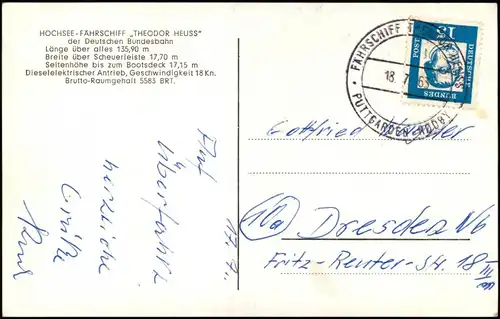 HOCHSEE-FÄHRSCHIFF „THEODOR HEUSS"
der Deutschen Bundesbahn
Länge über alles 135,90 m
Breite über Scheuerleiste 17,70 m
Seitenhöhe bis zum Bootsdeck 17,15 m
Dieselelektrischer Antrieb, Geschwindigkeit 18 Kn.
Brutto-Raumgehalt 5583 BRT.
17.7.
Auf
Überfahrt
herzliche
Grüße
FÄHRSCHIFF
PUTTGARDEN-RÖDBY
18.
15
DEUTSCHE
BUNDES
POST
Gottfried
(10a) Dresden N6
Fritz-Reuter-Str. 18
III